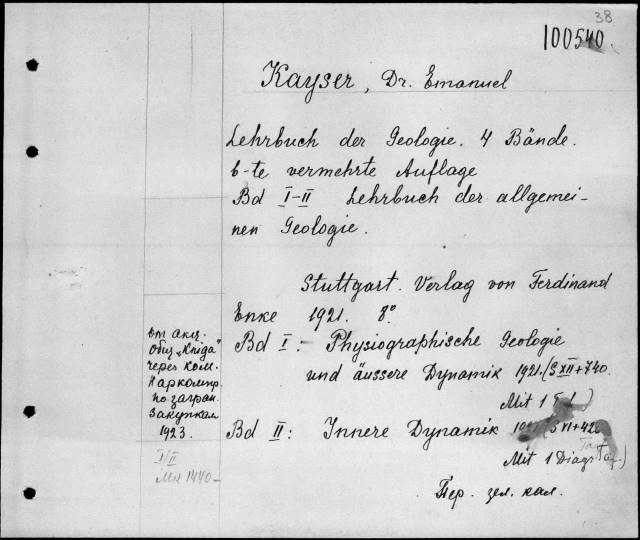 38
100540.
Kayser, Dr. Emanuel
Lehrbuch der Geologie. 4 Bände.
6-te vermehrte Auflage
Bd I-II Lehrbuch der allgemei-
nen Geologie.
Stuttgart. Verlag von Ferdinand
Enke 1921. 8°
Bd I: Physiographische Geologie
und äussere Dynamik 1921. (S XII+740.
Mit 1
Bd II: Innere Dynamik VI+42
Mit 1 Diagr Taf.)
Пер. зел. кал.
от акц.
общ „Kniga"
через ком.
Наркомпр.
по загран.
закупкам
1923.
I/II
Mk 1440-